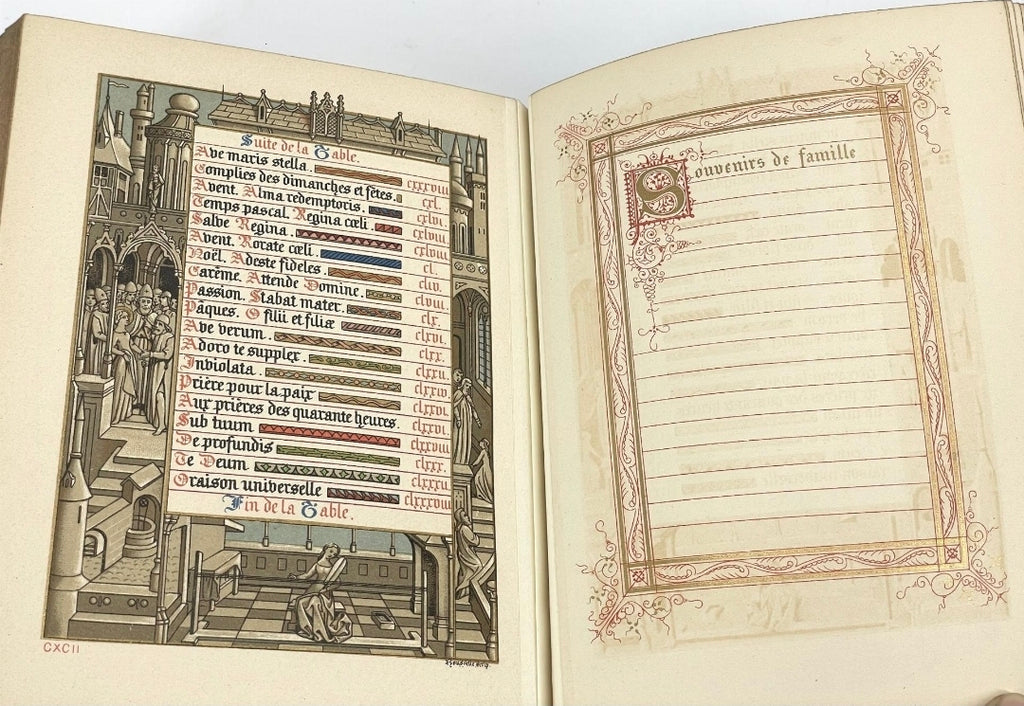 Suite de la Table.
Ave maris stella. cxxxviii
Complies des dimanches et fêtes. cxl.
Avent. Alma redemptoris. cxlvi.
Temps pascal. Regina cœli. cxlviii.
Salve Regina. cxlviii.
Avent. Rorate cœli. cl.
Noël. Adeste fideles. cliv.
Carême. Attende Domine. clviii.
Passion. Stabat mater. clx.
Pâques. O filii et filiæ clxvi.
Ave verum. clxx.
Adoro te supplex. clxxii.
Inviolata. clxxiv.
Prière pour la paix clxxvi.
Aux prières des quarante heures. clxxvi.
Sub tuum clxxviii
De profundis clxxx.
Te Deum clxxxii.
Oraison universelle clxxxviii
Fin de la Table.
CXCII
Souvenirs de famille